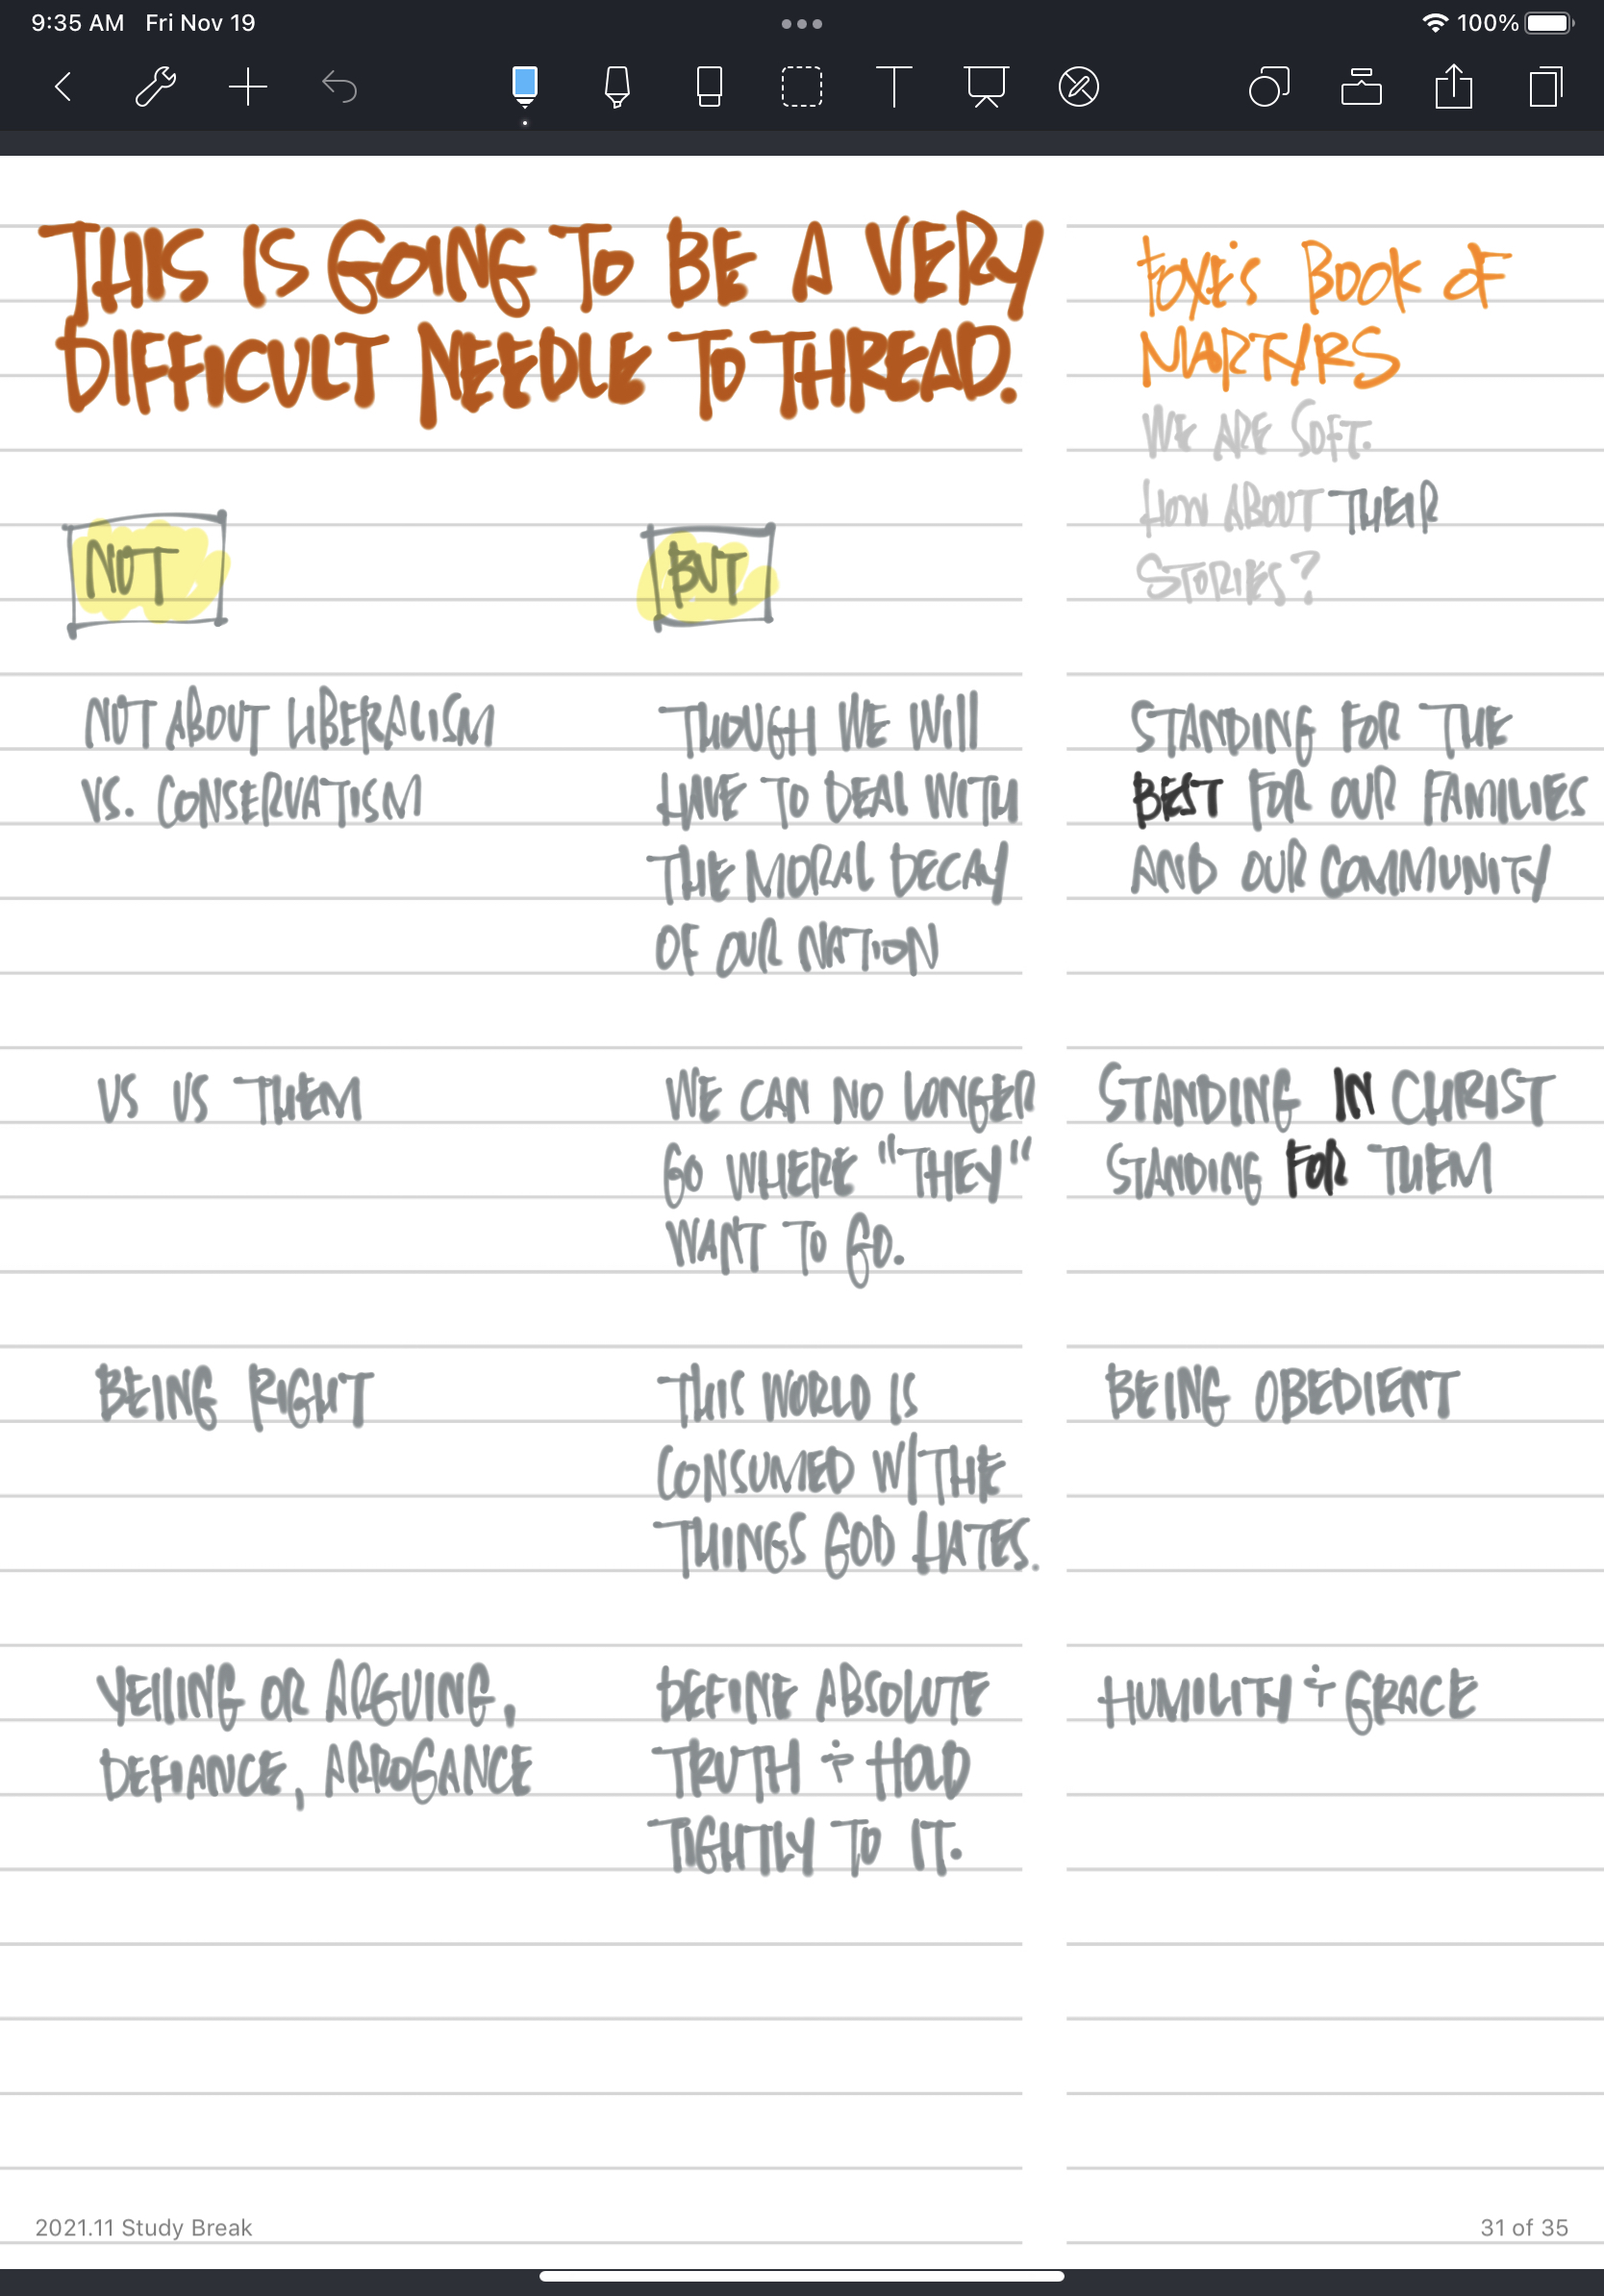 9:35 AM Fri Nov 19
100%
THIS IS GOING TO BE A VERY
DIFFICULT NEEDLE TO THREAD.
FOXE'S BOOK OF
MARTYRS
WE ARE SOFT.
HOW ABOUT THEIR
STORIES?
NOT
BUT
NOT ABOUT LIBERALISM
VS. CONSERVATISM
THOUGH WE WILL
HAVE TO DEAL WITH
THE MORAL DECAY
OF OUR NATION
STANDING FOR THE
BEST FOR OUR FAMILIES
AND OUR COMMUNITY
US VS THEM
WE CAN NO LONGER
GO WHERE "THEY"
WANT TO GO.
STANDING IN CHRIST
STANDING FOR THEM
BEING RIGHT
THIS WORLD IS
CONSUMED W/THE
THINGS GOD HATES.
BEING OBEDIENT
YELLING OR ARGUING,
DEFIANCE, ARROGANCE
DEFINE ABSOLUTE
TRUTH + HOLD
TIGHTLY TO IT.
HUMILITY + GRACE
2021.11 Study Break
31 of 35